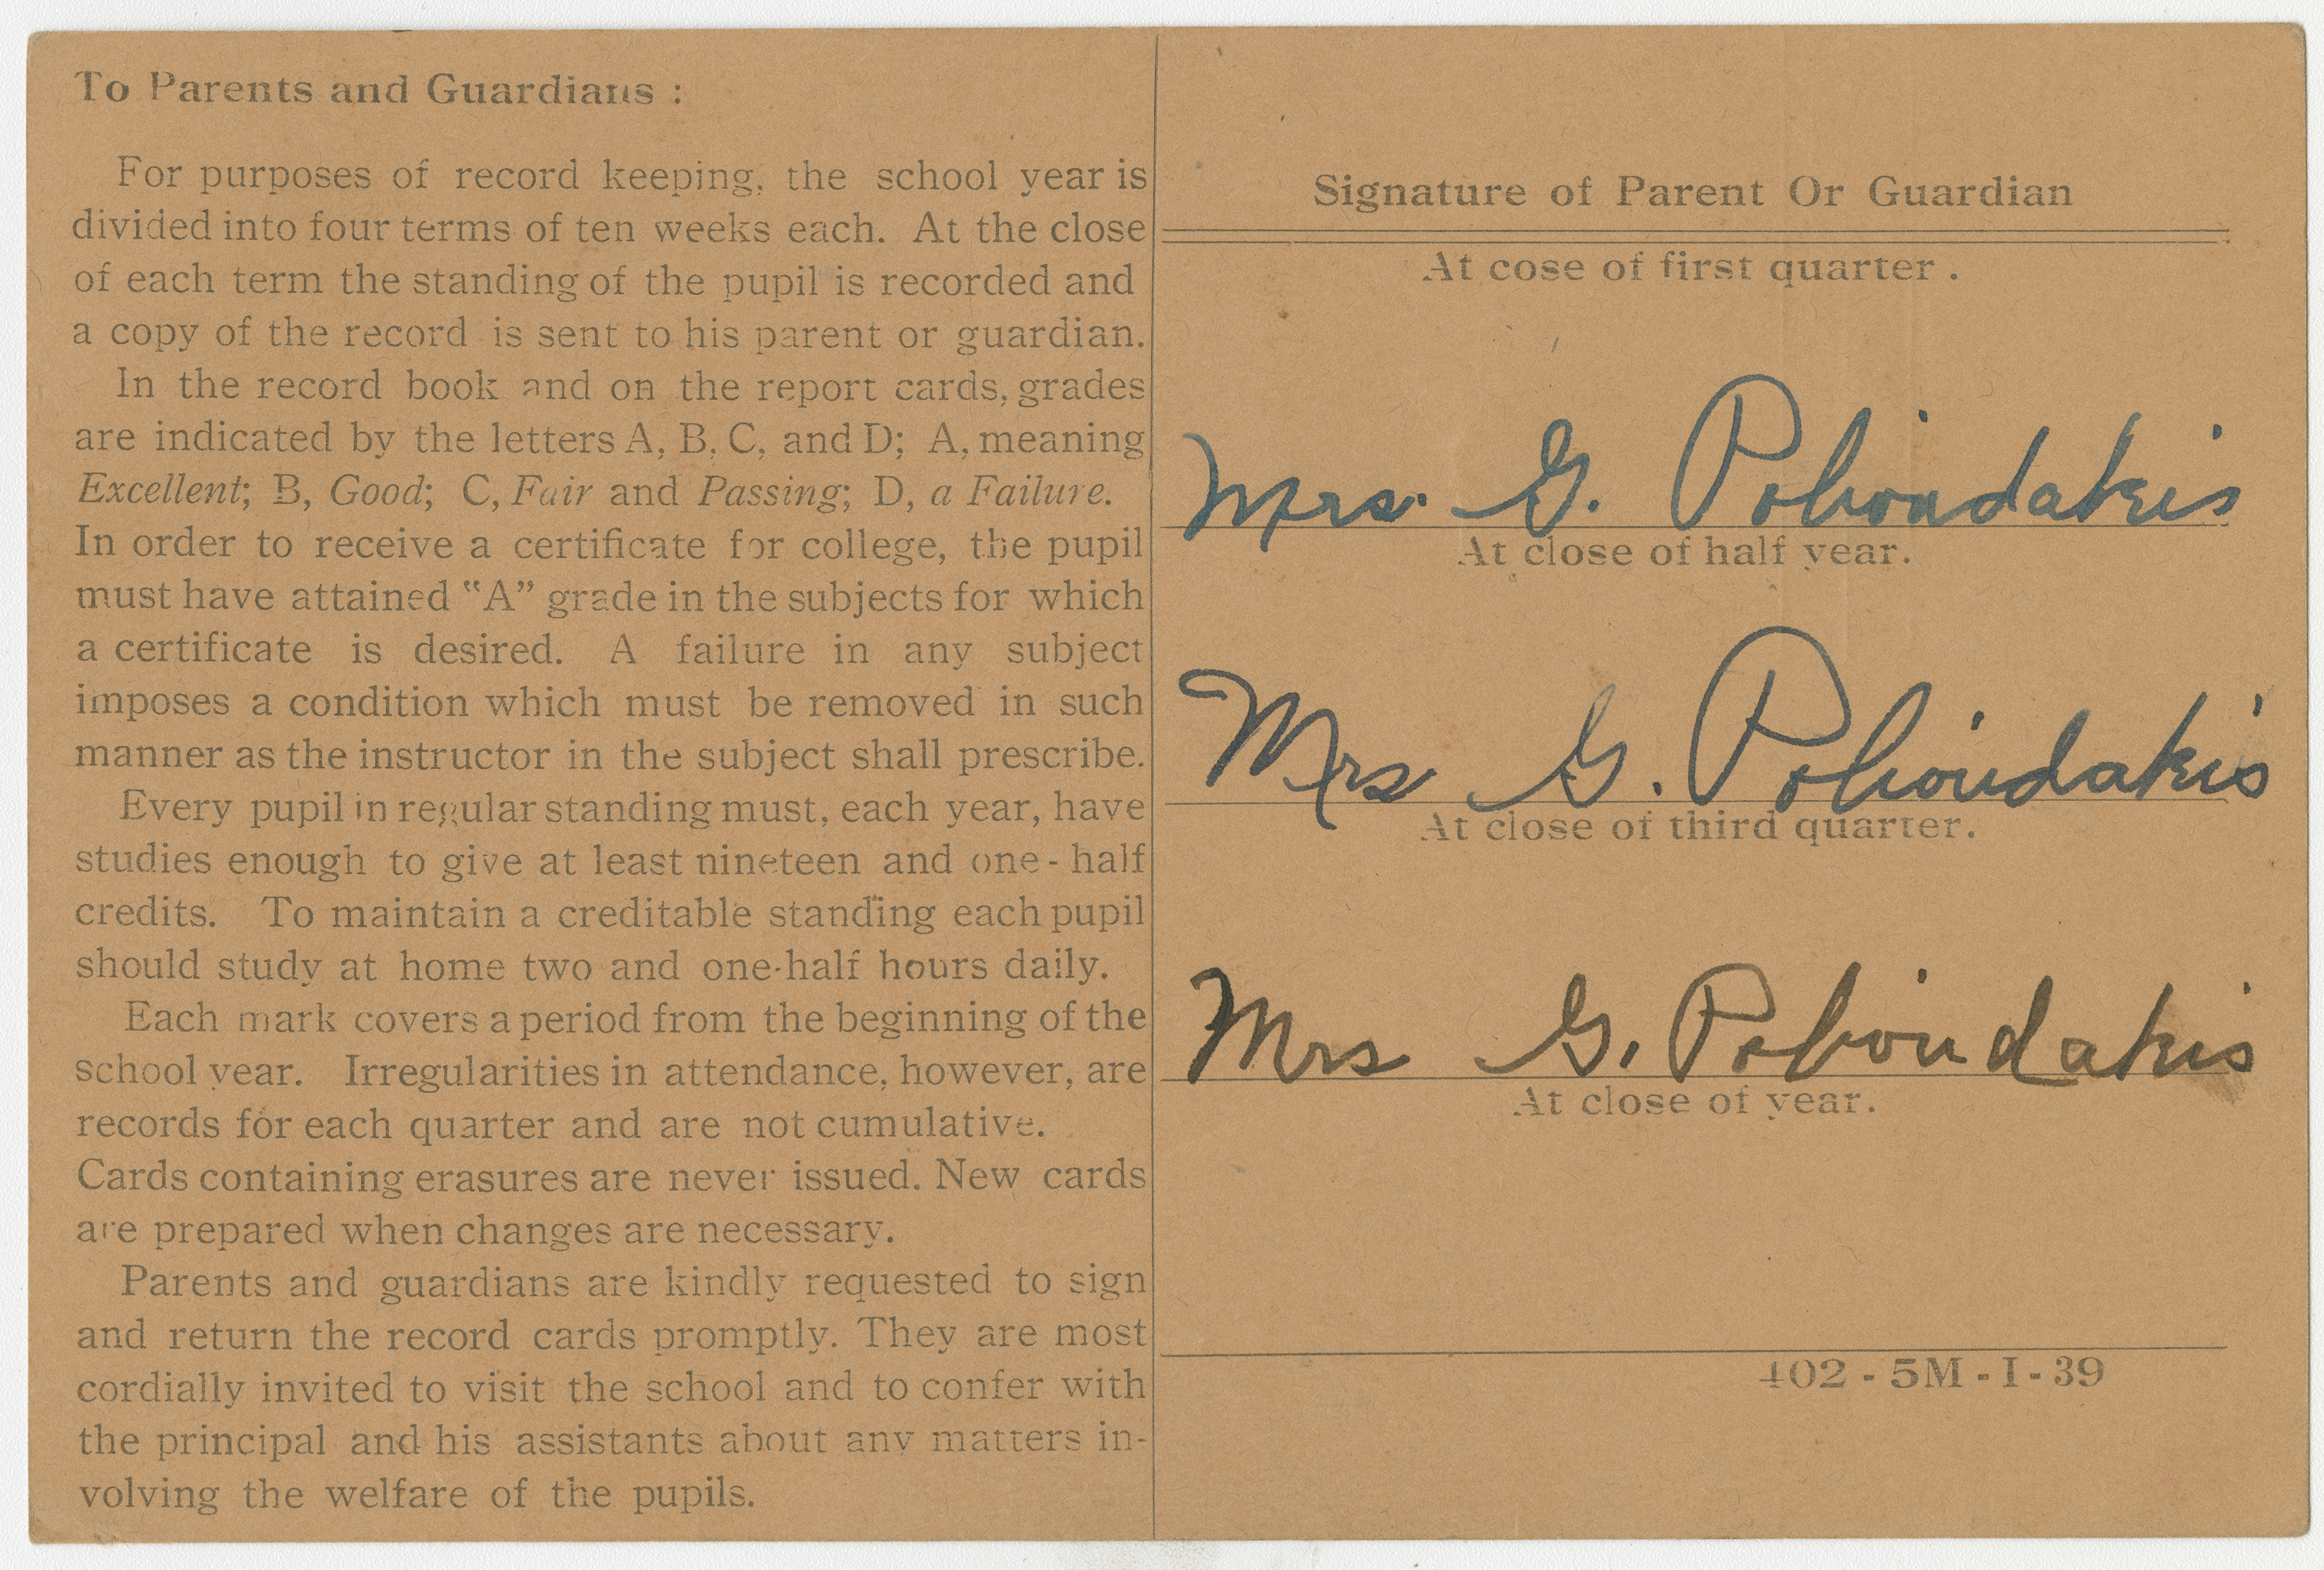 To Parents and Guardians :
For purposes of record keeping, the school year is
divided into four terms of ten weeks each. At the close
of each term the standing of the pupil is recorded and
a copy of the record is sent to his parent or guardian.
In the record book and on the report cards, grades
are indicated by the letters A, B, C, and D; A, meaning
Excellent; B, Good; C, Fair and Passing; D, a Failure.
In order to receive a certificate for college, the pupil
must have attained "A" grade in the subjects for which
a certificate is desired. A failure in any subject
imposes a condition which must be removed in such
manner as the instructor in the subject shall prescribe.
Every pupil in regular standing must, each year, have
studies enough to give at least nineteen and one-half
credits. To maintain a creditable standing each pupil
should study at home two and one-half hours daily.
Each mark covers a period from the beginning of the
school year. Irregularities in attendance, however, are
records for each quarter and are not cumulative.
Cards containing erasures are never issued. New cards
are prepared when changes are necessary.
Parents and guardians are kindly requested to sign
and return the record cards promptly. They are most
cordially invited to visit the school and to confer with
the principal and his assistants about any matters in-
volving the welfare of the pupils.
Signature of Parent Or Guardian
At cose of first quarter .
Mrs. G.
At close of half year.
Mrs G.
At close of third quarter.
Mrs G.
At close of year.
402 - 5M - I - 39